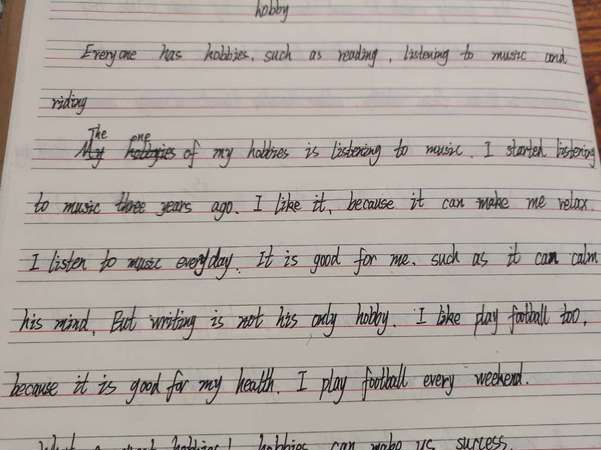 hobby
Everyone has hobbies, such as reading, listening to music and
riding
The one
My hobbies of my hobbies is listening to music. I started listening
to music three years ago. I like it, because it can make me relax.
I listen to music everyday. It is good for me. such as it can calm
his mind. But writing is not his only hobby. I like play football too,
because it is good for my health. I play football every weekend.
What a great hobbies! hobbies can make us success.